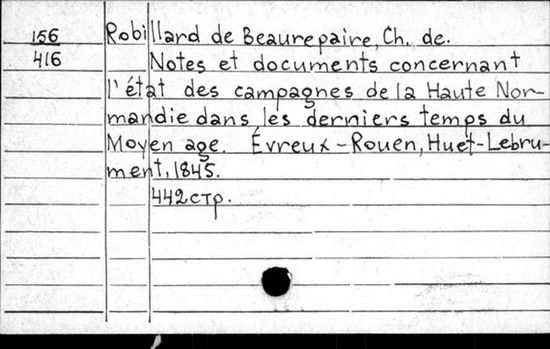 156 Robillard de Beaurepaire, Ch. de.
416 Notes et documents concernant
l'état des campagnes de la Haute Nor-
mandie dans les derniers temps du
Moyen age. Évreux-Rouen, Huet-Lebru-
ment, 1845.
442стр.